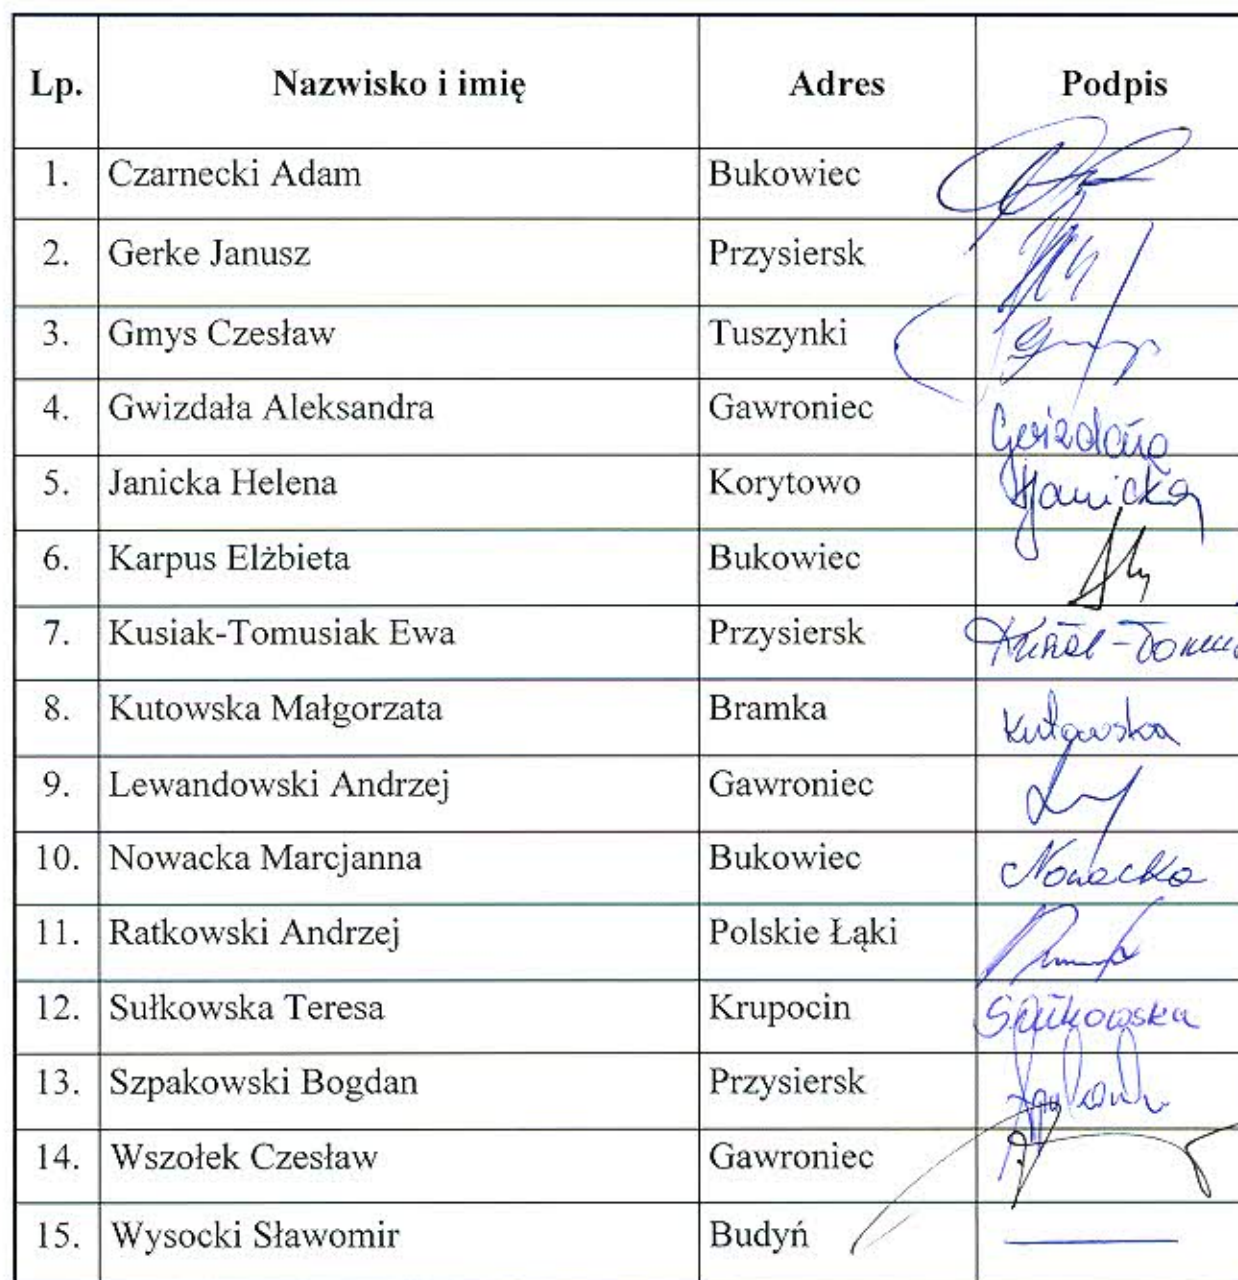 Lp. Nazwisko i imię Adres Podpis
1. Czarnecki Adam Bukowiec
2. Gerke Janusz Przysiersk
3. Gmys Czesław Tuszynki
4. Gwizdała Aleksandra Gawroniec Gwizdała
5. Janicka Helena Korytowo HJanicka
6. Karpus Elżbieta Bukowiec
7. Kusiak-Tomusiak Ewa Przysiersk
8. Kutowska Małgorzata Bramka Kutowska
9. Lewandowski Andrzej Gawroniec
10. Nowacka Marcjanna Bukowiec Nowacka
11. Ratkowski Andrzej Polskie Łąki
12. Sułkowska Teresa Krupocin Sułkowska
13. Szpakowski Bogdan Przysiersk
14. Wszołek Czesław Gawroniec
15. Wysocki Sławomir Budyń